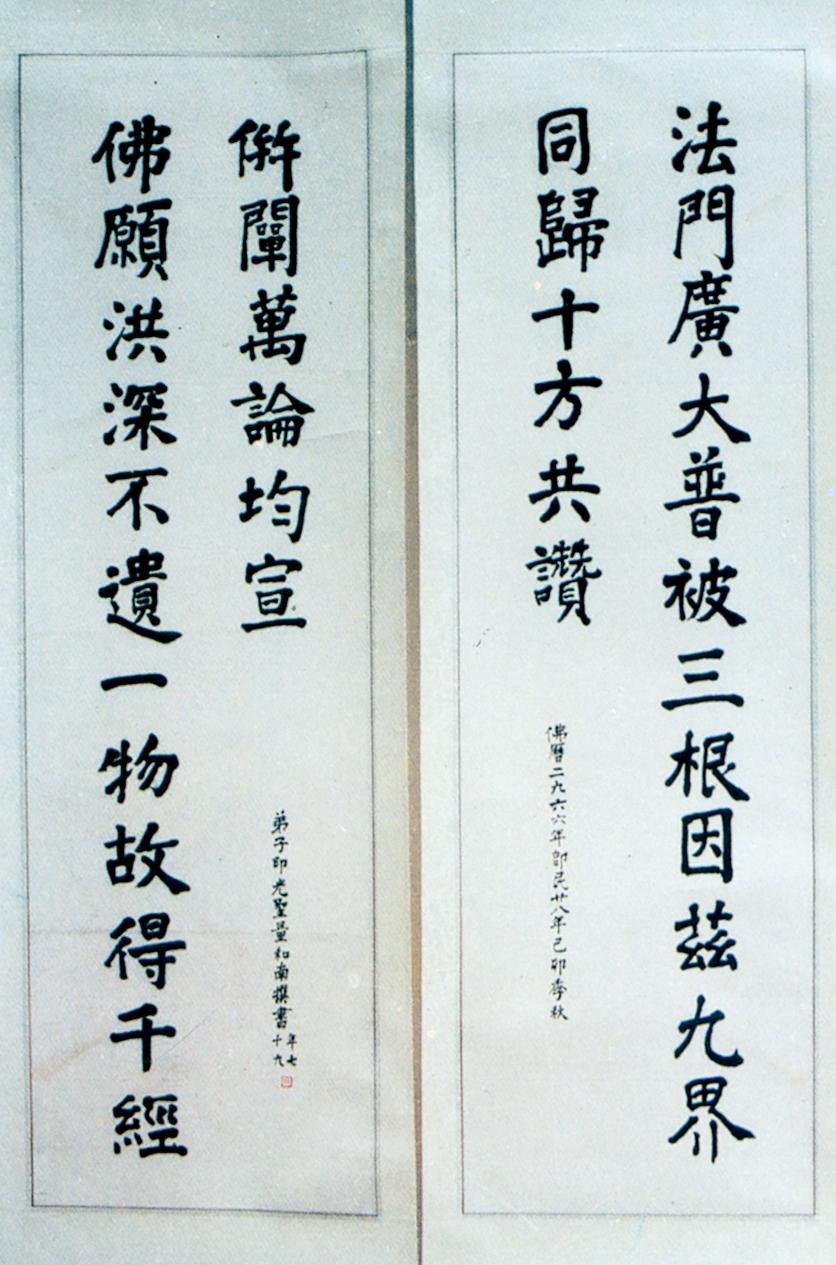 法門廣大普被三根因茲九界
同歸十方共讚
佛曆二九六六年即民廿八年己卯季秋
佛願洪深不遺一物故得千經
併闡萬論均宣
弟子印光聖量和南撰書
年七
十九